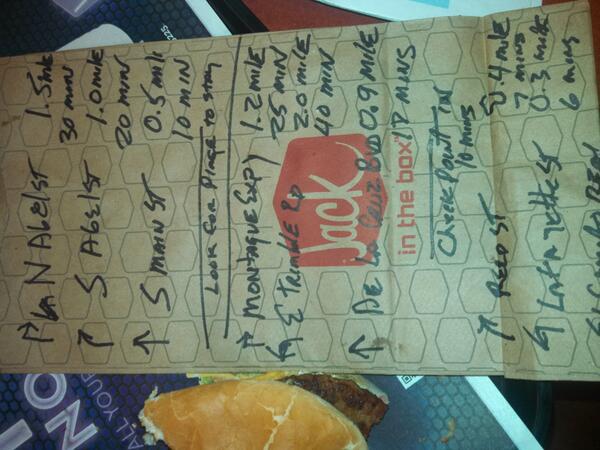 ↱ N Abel st 1.5 mile
30 min
↑ S Abel st 1.0 mile
20 min
↑ S Main st 0.5 mile
10 min
Look for Place to stay
↱ Montague Expy 1.2 mile
25 min
↰ E Trimble Rd 2.0 mile
40 min
↑ De La Cruz Blvd 0.9 mile
17 mins
Jack
in the box
Check Point in
10 mins
↱ Reed st 0.4 mile
7 mins
↰ Lafayette st 0.3 mile
6 mins
El Camino Real
ALL YOU
NO